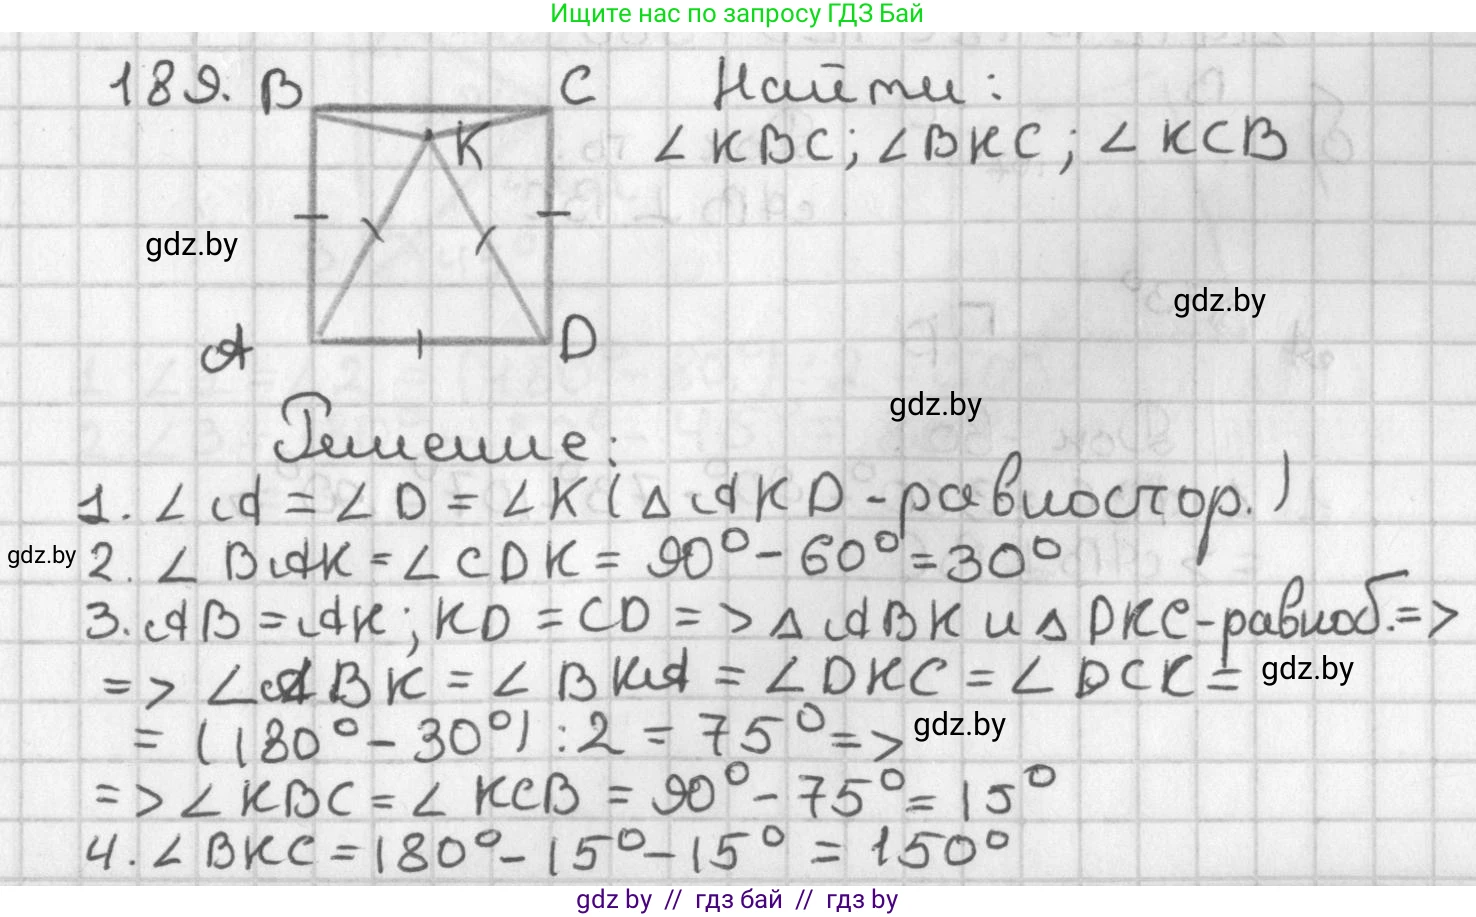 Ищите нас по запросу ГДЗ Бай
189. B C Найти:
K ∠KBC; ∠BKC; ∠KCB
gdz.by
gdz.by
A D
gdz.by
Решение:
1. ∠A = ∠D = ∠K (△AKD - равностор.)
gdz.by
2. ∠BAK = ∠CDK = 90° - 60° = 30°
3. AB = AK; KD = CD => △ABK и △DKC - равноб. =>
=> ∠ABK = ∠BKA = ∠DKC = ∠DCK =
gdz.by
= (180° - 30°) : 2 = 75° =>
gdz.by
=> ∠KBC = ∠KCB = 90° - 75° = 15°
4. ∠BKC = 180° - 15° - 15° = 150°
gdz by // гдз бай // гдз by